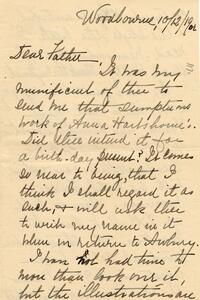 Woodbourne, 10/12/1902
Dear Father
It was very
munificent of thee to
send me that sumptuous
work of Anna Hartshorne's.
Did thee intend it for
a birth-day present? It comes
so near to being, that I
think I shall regard it as
such, & will ask thee
to write my name in it
when we return to
I have not had time to
more than look over it,
but the illustrations are